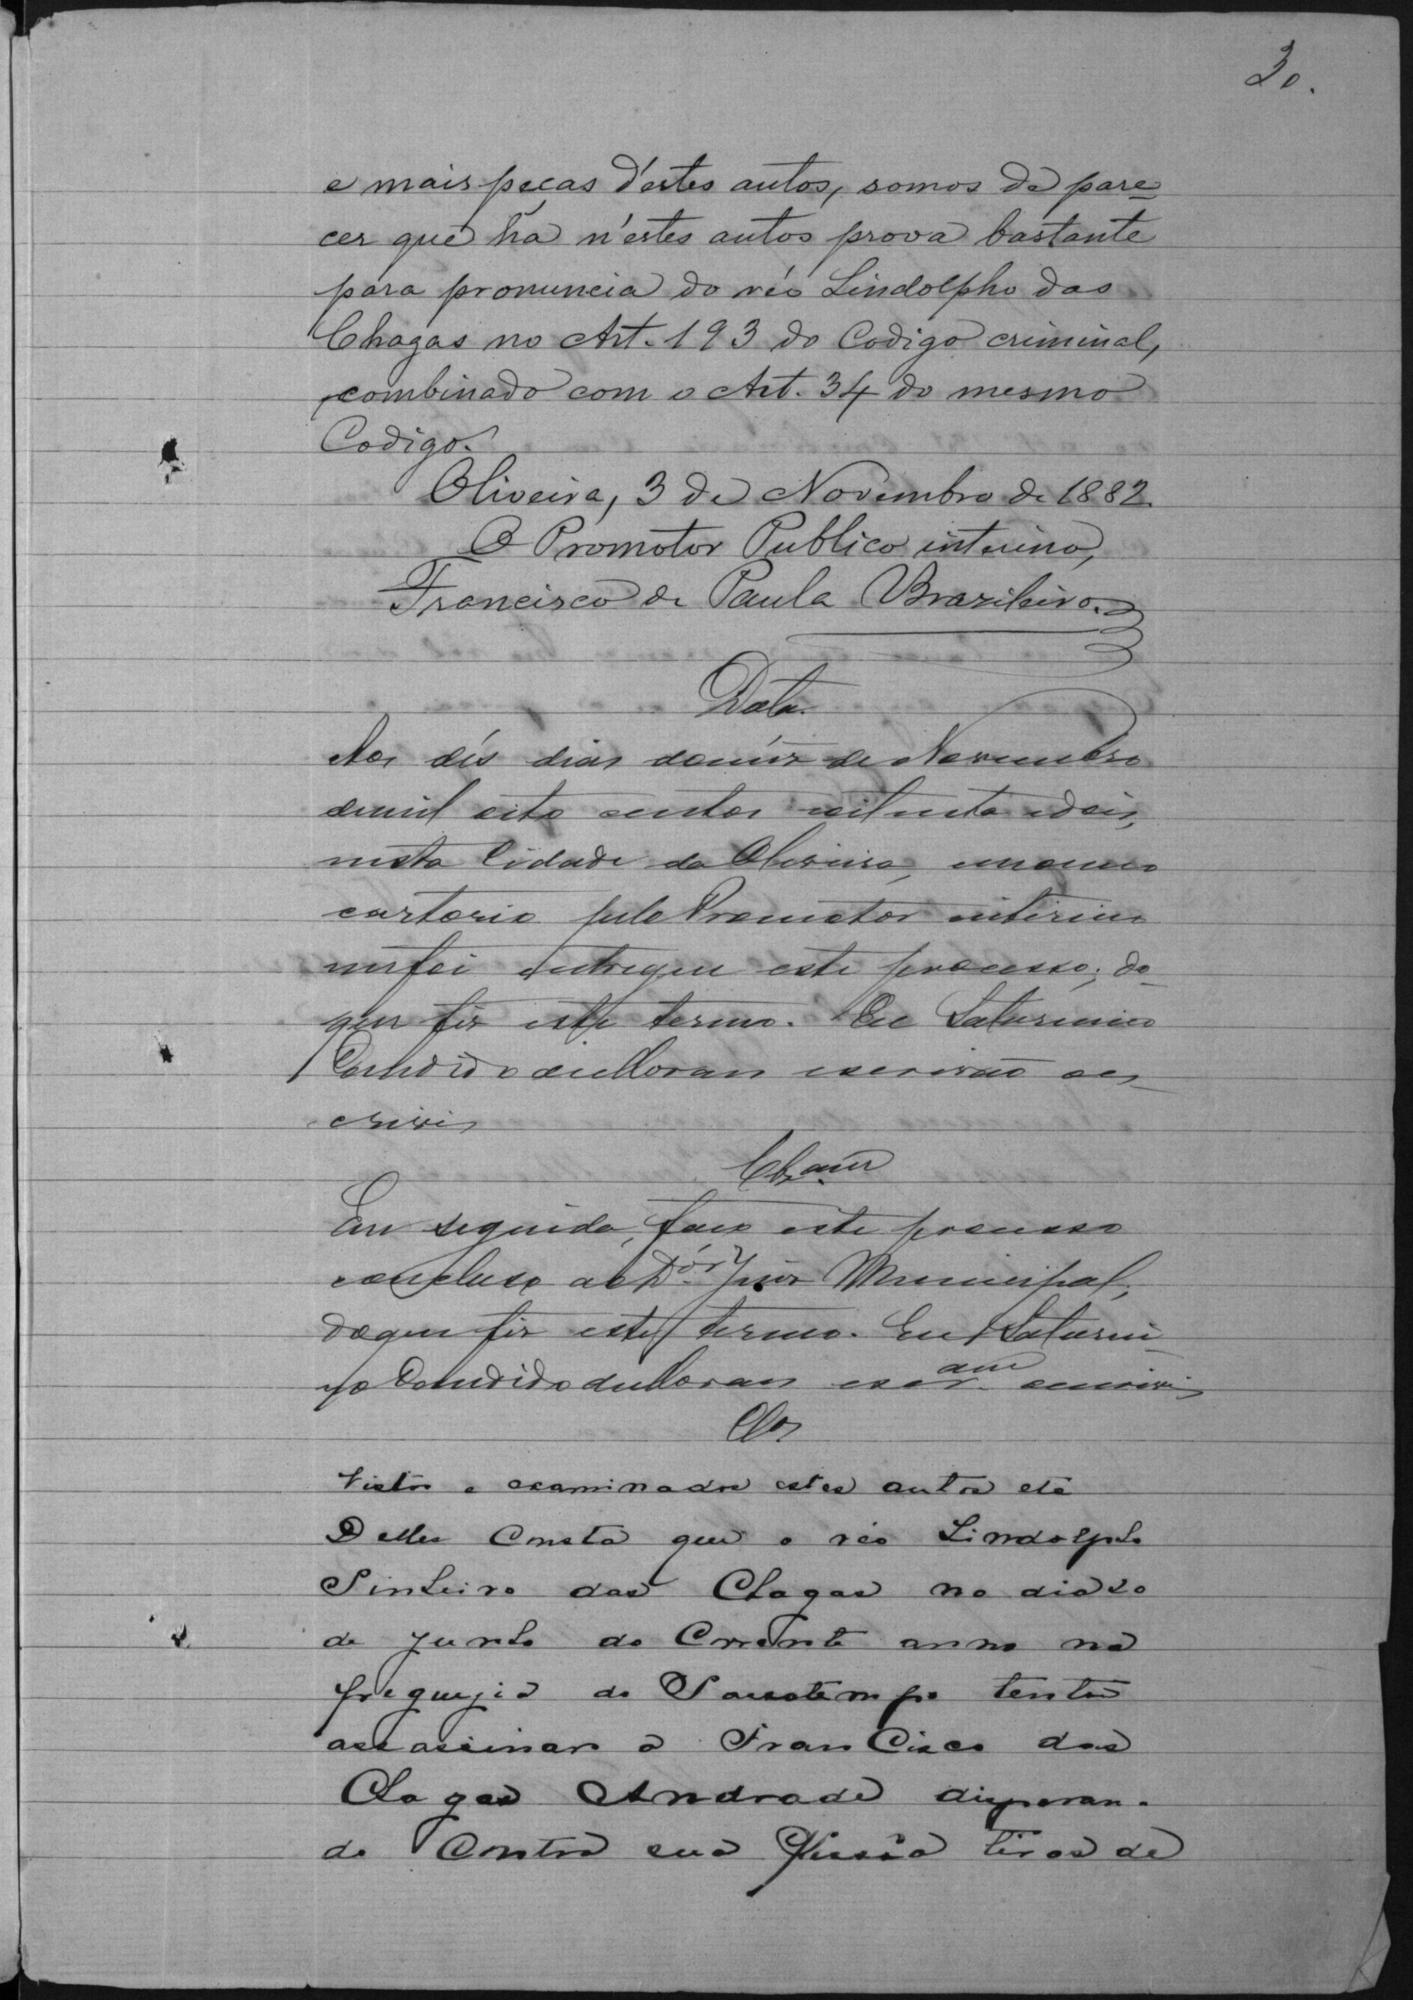 30.
e mais peças d'estes autos, somos de pare-
cer que ha n'estes autos prova bastante
para pronuncia do réo Lindolpho das
Chagas no Art. 193 do Codigo criminal,
combinado com o Art. 34 do mesmo
Codigo.
Oliveira, 3 de Novembro de 1882.
O Promotor Publico interino,
Francisco de Paula Brazileiro.
Data
Aos dés dias do méz de Novembro
de mil oito centos oitenta e dois,
nesta Cidade da Oliveira, em meu
cartorio pelo Promotor interino
me foi entregue este processo; do
que fiz este termo. Eu Saturnino
Candido de Moraes escrivão es-
crivi
Clz.am
Em seguida, faço este processo
concluso ao D.or Juiz Municipal,
do que fiz este termo. Eu Saturni-
no Candido de Moraes escr.am escrivi
Clos
Vistos e examinados estes autos etc
Delles Consta que o réo Lindolpho
Pinheiro das Chagas no dia 20
de Junho do Corrente anno na
freguezia do Passatempo tentou
assassinar a Francisco das
Chagas Andrade disparan-
do Contra sua Pessôa tiros de